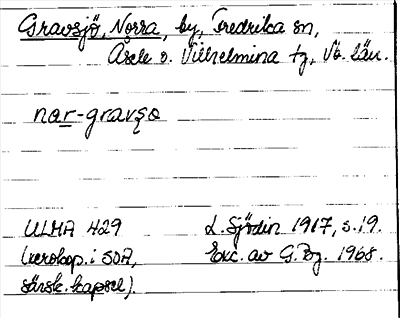 Gravsjö, Norra, by, Fredrika sn,
Åsele o. Vilhelmina tg, Vb. län.
nar-gravsø
ULMA 429
(xerokop. i SOA,
särsk. kapsel)
L. Sjödin 1917, s. 19.
Exc. av G. Bg. 1968.